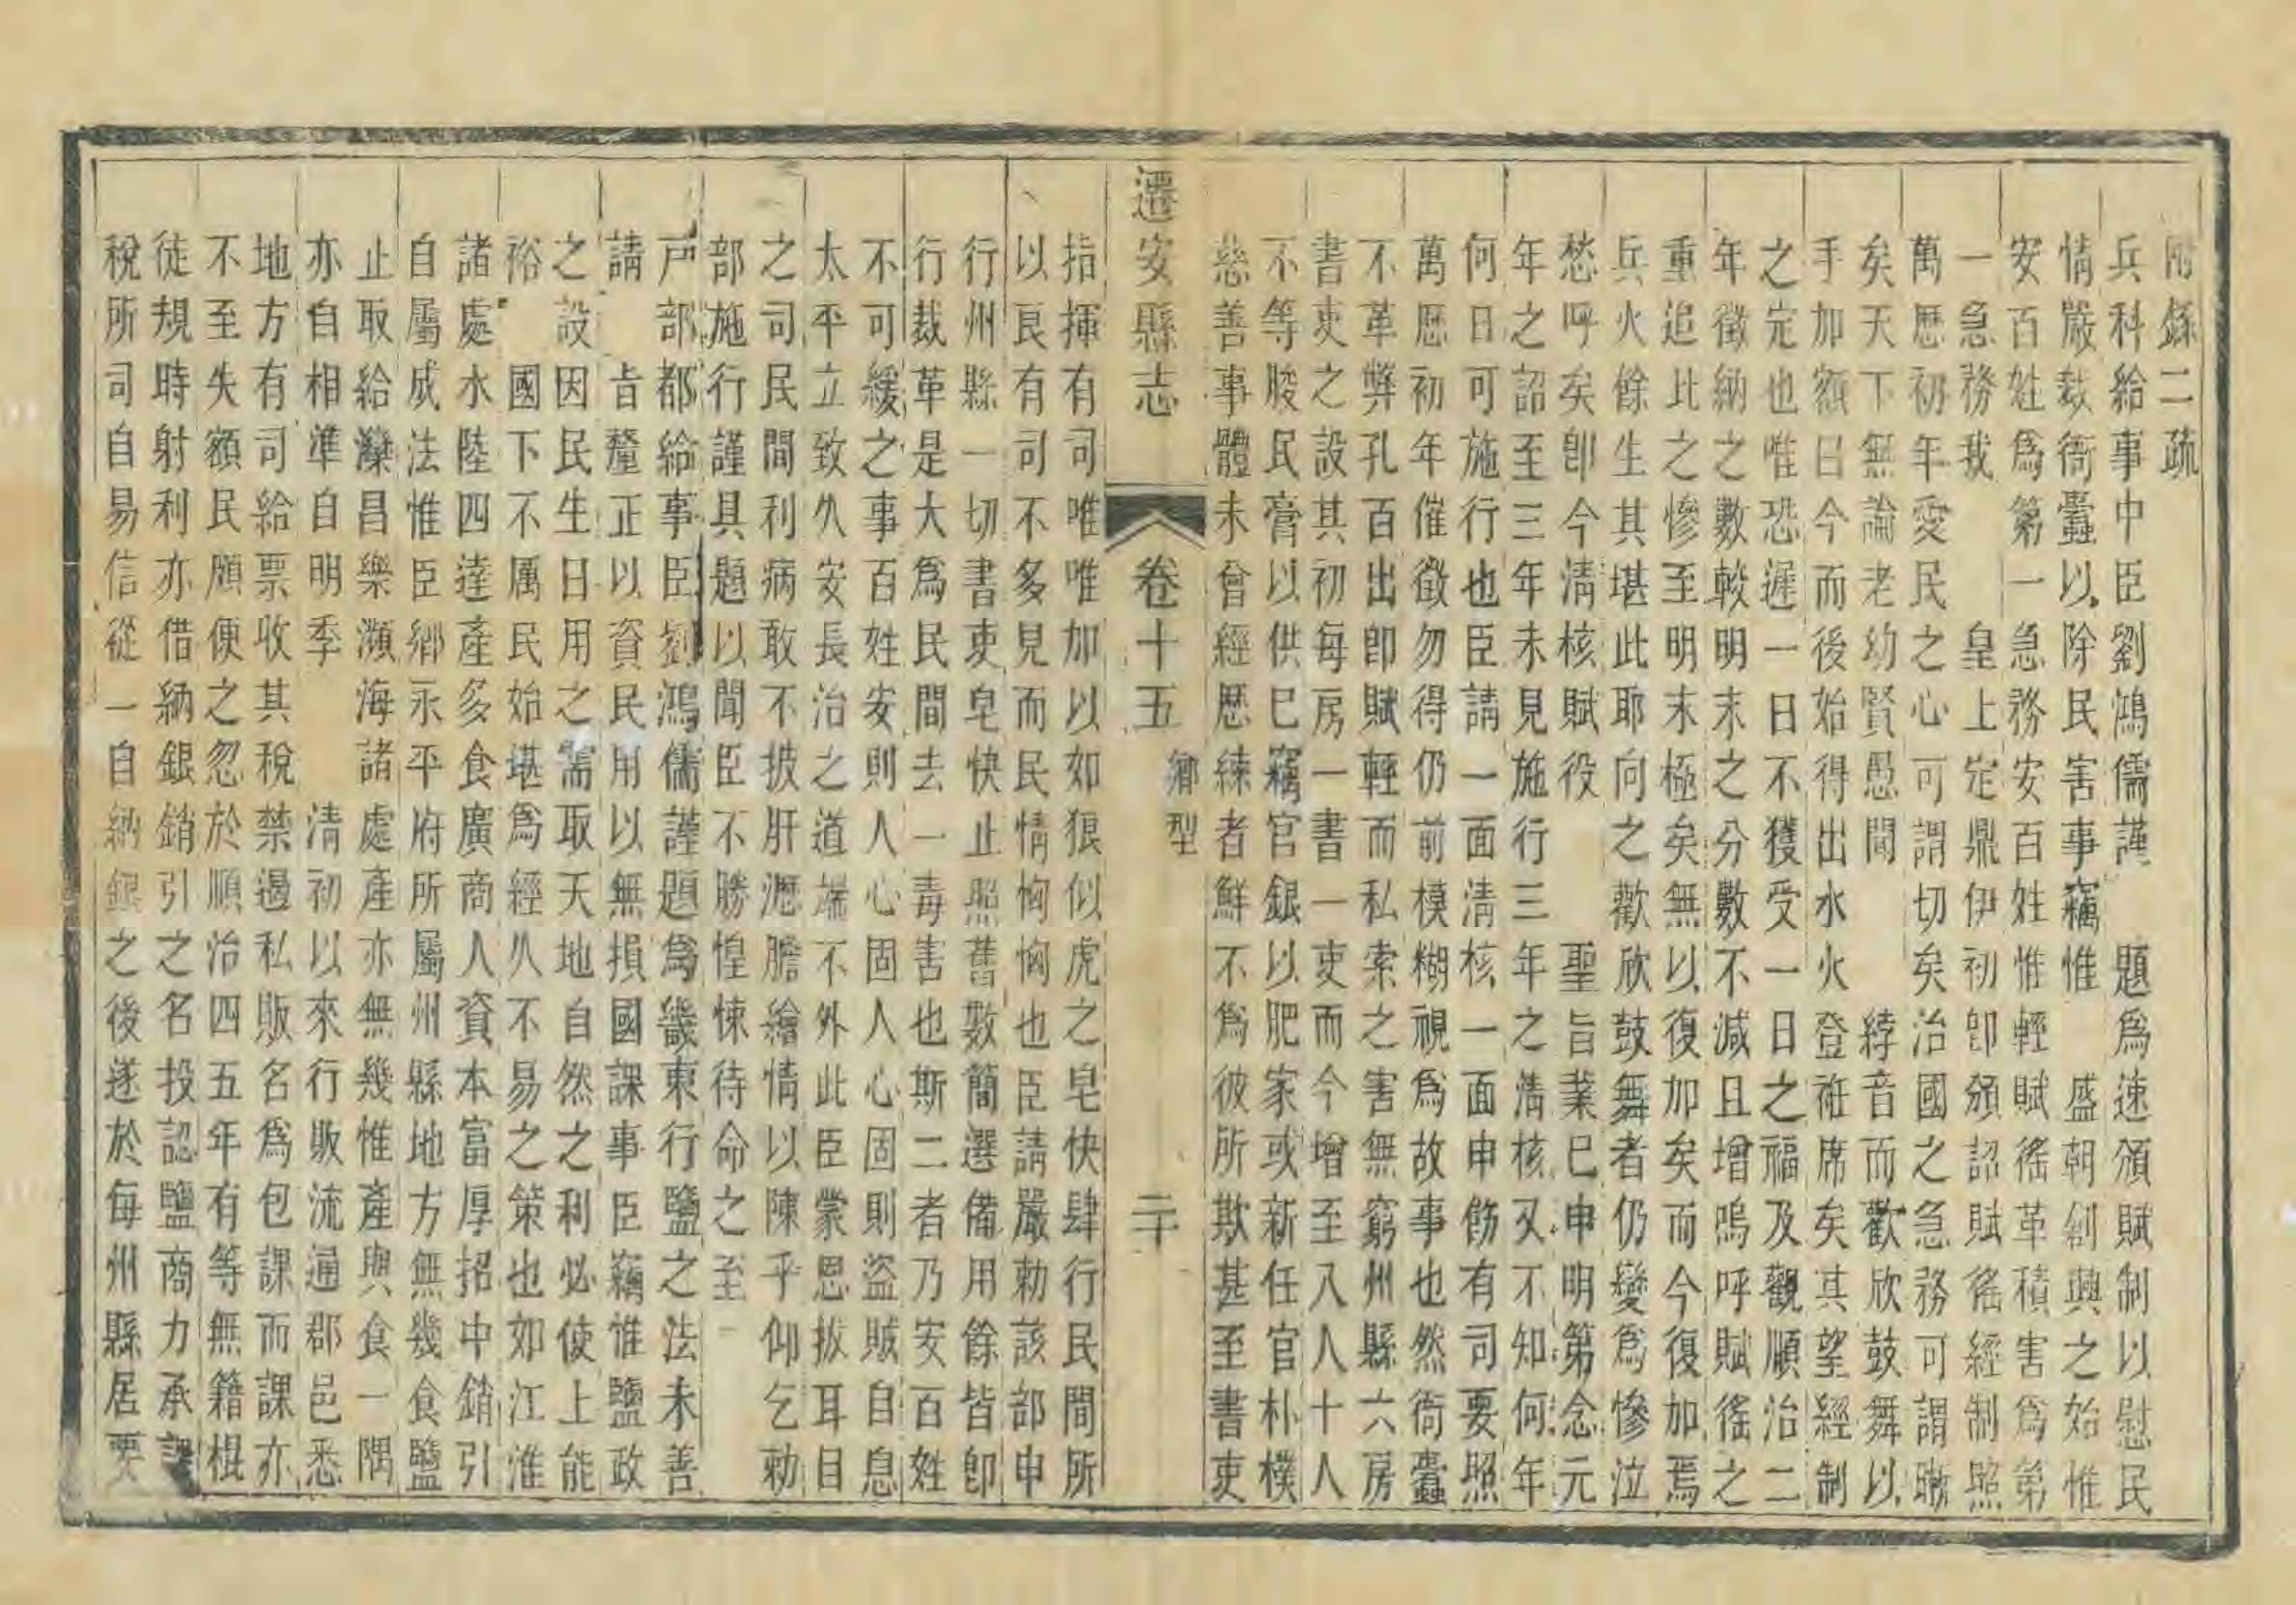 附錄二疏
兵科給事中臣劉鴻儒謹　題爲速頒賦制以慰民
情嚴裁衙蠹以除民害事竊惟　盛朝創興之始惟
安百姓爲第一急務安百姓惟輕賦徭革積害爲第
一急務我　皇上定鼎伊初卽頒詔賦徭經制照
萬歷初年愛民之心可謂切矣治國之急務可謂瞭
矣天下無論老幼賢愚聞　綍音而歡欣鼓舞以
手加額曰今而後始得出水火登袵席矣其望經制
之定也唯恐遲一日不獲受一日之福及觀順治二
年徵納之數較明末之分數不減且增嗚呼賦徭之
重追比之慘至明末極矣無以復加矣而今復加焉
兵火餘生其堪此耶向之歡欣鼓舞者仍變爲慘泣
愁呼矣卽今淸核賦役　聖旨業已申明第念元
年之詔至三年未見施行三年之淸核又不知何年
何日可施行也臣請一面淸核一面申飭有司要照
萬歷初年催徵勿得仍前模糊視爲故事也然衙蠹
不革弊孔百出卽賦輕而私索之害無窮州縣六房
書吏之設其初每房一書一吏而今增至八人十人
不等朘民膏以供已竊官銀以肥家或新任官朴樸
慈善事體未曾經歷練者鮮不爲彼所欺甚至書吏
遷安縣志　卷十五　鄉型　二十
指揮有司唯唯加以如狼似虎之皂快肆行民間所
以良有司不多見而民情恟恟也臣請嚴勅該部申
行州縣一切書吏皂快止照舊數簡選備用餘皆卽
行裁革是大爲民間去一毒害也斯二者乃安百姓
不可緩之事百姓安則人心固人心固則盜賊自息
太平立致久安長治之道端不外此臣蒙恩拔耳目
之司民間利病敢不披肝瀝膽繪情以陳乎仰乞勅
部施行謹具題以聞臣不勝惶悚待命之至
戸部都給事臣劉鴻儒謹題爲畿東行鹽之法未善
請　旨釐正以資民用以無損國課事臣竊惟鹽政
之設因民生日用之需取天地自然之利必使上能
裕　國下不厲民始堪爲經久不易之策也如江淮
諸處水陸四達產多食廣商人資本富厚招中銷引
自屬成法惟臣鄉永平府所屬州縣地方無幾食鹽
止取給灤昌樂瀕海諸處產亦無幾惟產與食一隅
亦自相準自明季　淸初以來行販流通郡邑悉
地方有司給票收其稅禁遏私販名爲包課而課亦
不至失額民頗便之忽於順治四五年有等無籍棍
徒規時射利亦借納銀銷引之名投認鹽商力承課
稅所司自易信從一自納銀之後遂於每州縣居要